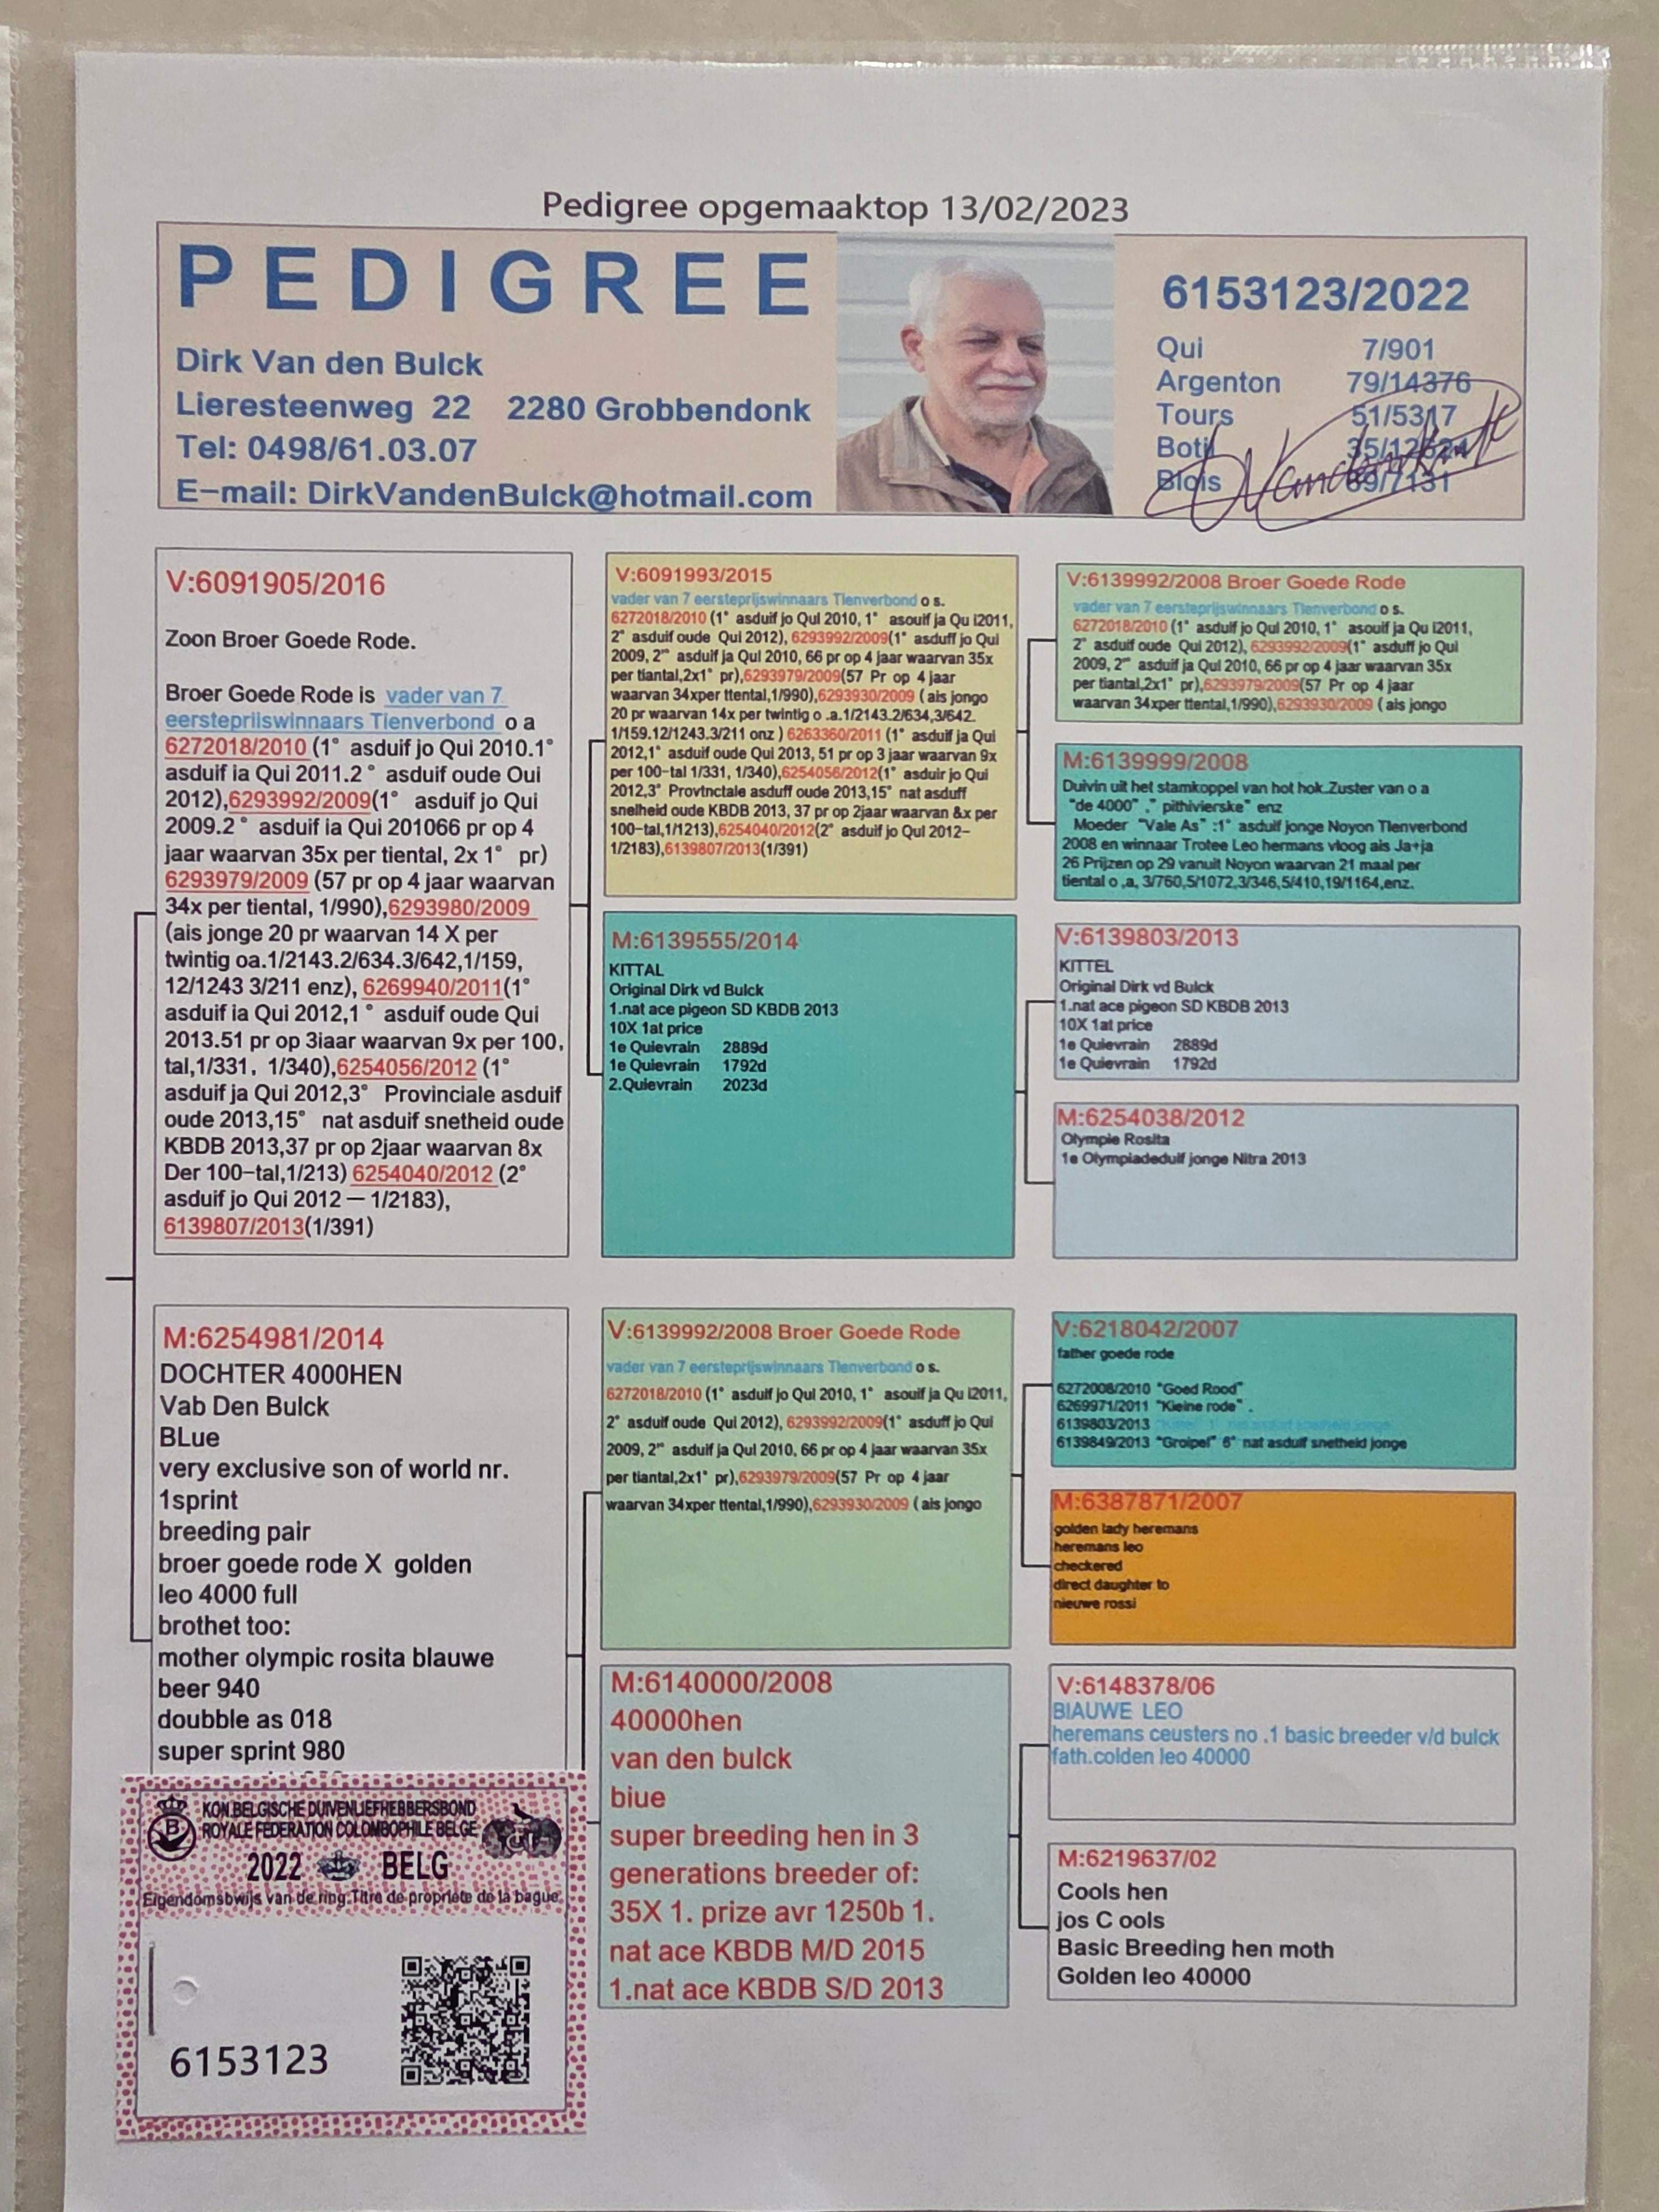 Pedigree opgemaaktop 13/02/2023
PEDIGREE
Dirk Van den Bulck
Lieresteenweg 22 2280 Grobbendonk
Tel: 0498/61.03.07
E-mail: DirkVandenBulck@hotmail.com
6153123/2022
Qui 7/901
Argenton 79/14376
Tours 51/5317
Blois 69/7131
V:6091905/2016
Zoon Broer Goede Rode.
Broer Goede Rode is vader van 7
eerstepriiswinnaars Tienverbond o a
6272018/2010 (1° asduif jo Qui 2010.1°
asduif ia Qui 2011.2° asduif oude Oui
2012),6293992/2009(1° asduif jo Qui
2009.2° asduif ia Qui 201066 pr op 4
jaar waarvan 35x per tiental, 2x 1° pr)
6293979/2009 (57 pr op 4 jaar waarvan
34x per tiental, 1/990),6293980/2009
(ais jonge 20 pr waarvan 14 X per
twintig oa.1/2143.2/634.3/642,1/159,
12/1243 3/211 enz), 6269940/2011(1°
asduif ia Qui 2012,1° asduif oude Qui
2013.51 pr op 3iaar waarvan 9x per 100,
tal,1/331. 1/340),6254056/2012 (1°
asduif ja Qui 2012,3° Provinciale asduif
oude 2013,15° nat asduif snetheid oude
KBDB 2013,37 pr op 2jaar waarvan 8x
Der 100-tal,1/213) 6254040/2012 (2°
asduif jo Qui 2012 — 1/2183),
6139807/2013(1/391)
V:6091993/2015
vader van 7 eersteprijswinnaars Tlenverbond o s.
6272018/2010 (1° asduif jo Qul 2010, 1° asouif ja Qu i2011,
2° asduif oude Qui 2012), 6293992/2009(1° asduff jo Qui
2009, 2° asduif ja Qul 2010, 66 pr op 4 jaar waarvan 35x
per tiantal,2x1° pr),6293979/2009(57 Pr op 4 jaar
waarvan 34xper ttental,1/990),6293930/2009 ( ais jongo
20 pr waarvan 14x per twintig o .a.1/2143.2/634,3/642.
1/159.12/1243.3/211 onz ) 6263360/2011 (1° asduif ja Qui
2012,1° asduif oude Qui 2013, 51 pr op 3 jaar waarvan 9x
per 100-tal 1/331, 1/340),6254056/2012(1° asduir jo Qui
2012,3° Provtnctale asduff oude 2013,15° nat asduff
snelheid oude KBDB 2013, 37 pr op 2jaar waarvan &x per
100-tal,1/1213),6254040/2012(2° asduif jo Qul 2012-
1/2183),6139807/2013(1/391)
V:6139992/2008 Broer Goede Rode
vader van 7 eersteprijswinnaars Tlenverbond o s.
6272018/2010 (1° asduif jo Qul 2010, 1° asouif ja Qu i2011,
2° asduif oude Qui 2012), 6293992/2009(1° asduff jo Qui
2009, 2° asduif ja Qul 2010, 66 pr op 4 jaar waarvan 35x
per tiantal,2x1° pr),6293979/2009(57 Pr op 4 jaar
waarvan 34xper ttental,1/990),6293930/2009 ( ais jongo
M:6139999/2008
Duivin uit het stamkoppel van hot hok.Zuster van o a
"de 4000" ," pithivierske" enz
Moeder "Vale As" :1° asduif jonge Noyon Tlenverbond
2008 en winnaar Trotee Leo hermans vloog ais Ja+ja
26 Prijzen op 29 vanuit Noyon waarvan 21 maal per
tiental o ,a, 3/760,5/1072,3/346,5/410,19/1164,enz.
M:6139555/2014
KITTAL
Original Dirk vd Bulck
1.nat ace pigeon SD KBDB 2013
10X 1at price
1e Quievrain 2889d
1e Quievrain 1792d
2.Quievrain 2023d
V:6139803/2013
KITTEL
Original Dirk vd Bulck
1.nat ace pigeon SD KBDB 2013
10X 1at price
1e Quievrain 2889d
1e Quievrain 1792d
M:6254038/2012
Olympie Rosita
1e Olympiadeduif jonge Nitra 2013
M:6254981/2014
DOCHTER 4000HEN
Vab Den Bulck
BLue
very exclusive son of world nr.
1sprint
breeding pair
broer goede rode X golden
leo 4000 full
brothet too:
mother olympic rosita blauwe
beer 940
doubble as 018
super sprint 980
V:6139992/2008 Broer Goede Rode
vader van 7 eersteprijswinnaars Tlenverbond o s.
6272018/2010 (1° asduif jo Qul 2010, 1° asouif ja Qu i2011,
2° asduif oude Qui 2012), 6293992/2009(1° asduff jo Qui
2009, 2° asduif ja Qul 2010, 66 pr op 4 jaar waarvan 35x
per tiantal,2x1° pr),6293979/2009(57 Pr op 4 jaar
waarvan 34xper ttental,1/990),6293930/2009 ( ais jongo
V:6218042/2007
father goede rode
6272008/2010 "Goed Rood"
6269971/2011 "Kleine rode" .
6139803/2013
6139849/2013 "Grolpel" 6° nat asduif snetheid jonge
M:6387871/2007
golden lady heremans
heremans leo
checkered
direct daughter to
nieuwe rossi
M:6140000/2008
40000hen
van den bulck
biue
super breeding hen in 3
generations breeder of:
35X 1. prize avr 1250b 1.
nat ace KBDB M/D 2015
1.nat ace KBDB S/D 2013
V:6148378/06
BIAUWE LEO
heremans ceusters no .1 basic breeder v/d bulck
fath.colden leo 40000
M:6219637/02
Cools hen
jos C ools
Basic Breeding hen moth
Golden leo 40000
KON.BELGISCHE DUIVENLIEFHEBBERSBOND
ROYALE FEDERATION COLOMBOPHILE BELGE
2022 BELG
Eigendomsbwijs van de ring.Titre de propriete de la bague.
6153123